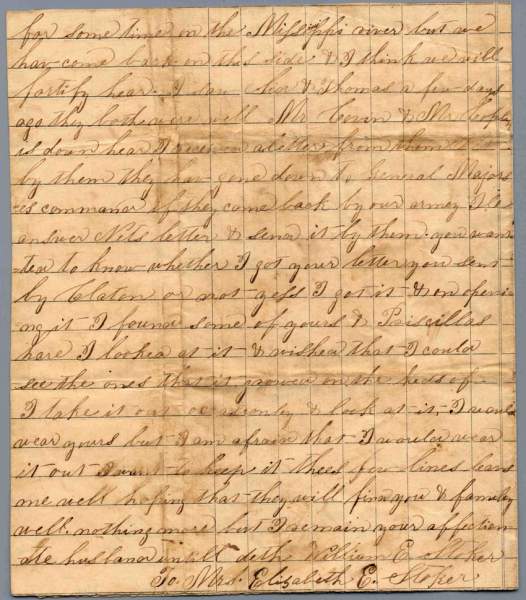 for some time on the Missippi river but we
hav come back on this side & I think we will
fortify hear I saw & Thomas a few days
ago they bothe were well Mr & Mr
is down hear I received a letter from
by them they hav gone down to General Majors
es command if they come back by our armey I le
answer Nets letter & send it by them you wan
ted to know whether I got your letter you sent
by Claton or not yess I got it & on openi
ng it I found some of yours & Priscillas
hare I looked at it & wished that I could
see the ones that it growed on the heds of
I take it out ocasionly & look at it, I would
wear yours but I am afraid that I would wear
it out I want to keep it thees few lines leavs
me well hoping that they will find you & famely
well. nothing more but I remain your affection
ate husband untill deth William E. Stoker
To Mrs. Elizabeth E. Stoker